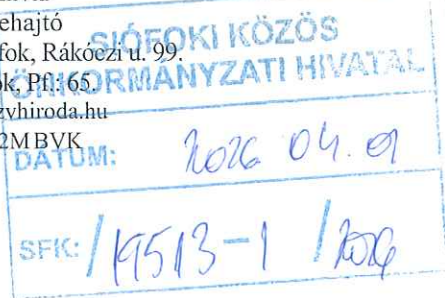 ehajtó
fok, Rákóczi u. 99.
ok, Pf.: 65.
zvhiroda.hu
2MBVK
SIÓFOKI KÖZÖS
ÖNKORMÁNYZATI HIVATAL
DÁTUM: 2026 04. 01
SFK: / 19513-1 / 2026